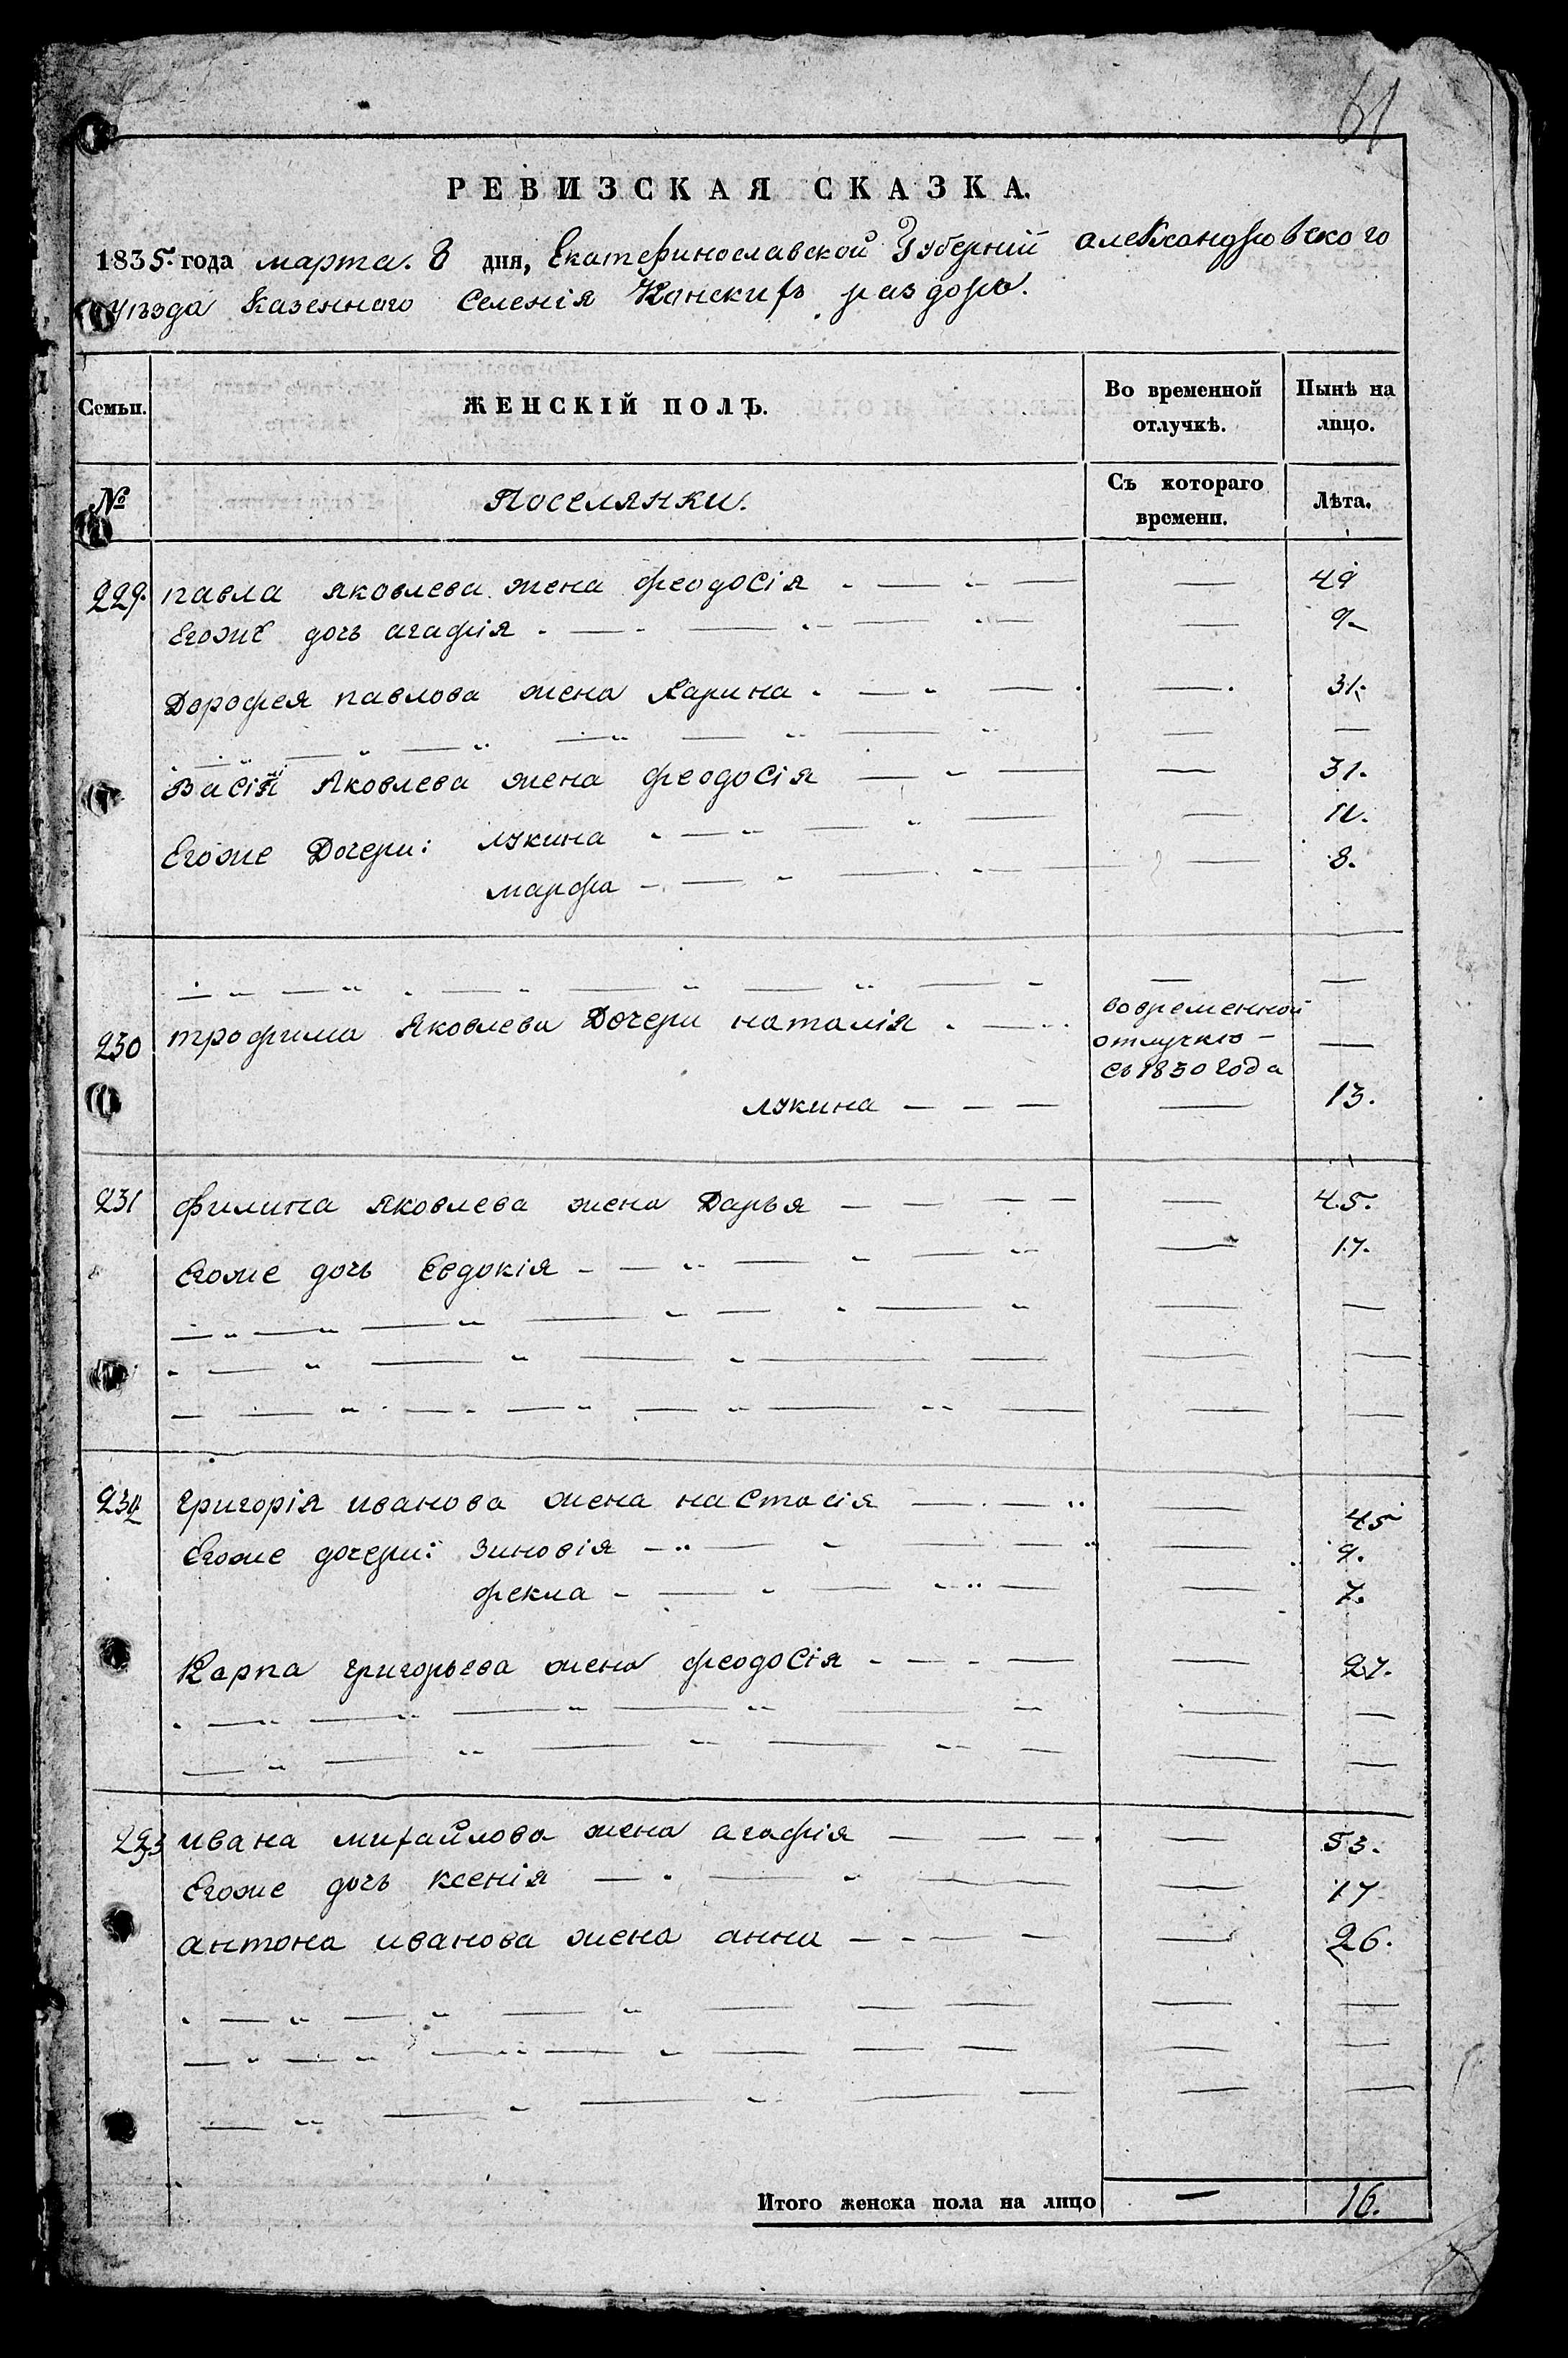 61
РЕВИЗСКАЯ СКАЗКА.
1835. года марта. 8 дня, Екатеринославской Губерніи александровского
уѣзда Казенного Селенія Конских раздоръ.
Семьи. ЖЕНСКІЙ ПОЛЪ. Во временной отлучкѣ. Нынѣ на лицо.
№ Поселянки. Съ котораго времени. Лѣта.
229. павла яковлева жена феодосія - — - — — 49
Егоже дочь агафія - — - — — 9.
Дорофея павлова жена Карина - — - — — 31.
— — — — — — —
Васія Яковлева жена феодосія — - — — 31.
Егоже Дочери: лукина - — - — — 11.
марфа - — - — — 8.
— — — — — — —
230 трофима Яковлева Дочери наталія - — вовременной
отлучкѣ — —
съ 1830 года
лукина — — — — 13.
231 филипа яковлева жена Дарья — — — — 45.
Егоже дочь Евдокія - — - — — 17.
— — — — — — —
— — — — — — —
— — — — — — —
232 григорія иванова жена настасія — - — — 45
Егоже дочери: зиновія - — - — — 9.
фекла - — - — — 7.
Карпа григорьева жена феодосія - — - — — 27.
— — — — — — —
— — — — — — —
233 ивана михайлова жена агафія — — — — 53.
Егоже дочь ксенія — - — — 17
антона иванова жена анна — - — — 26.
— — — — — — —
— — — — — — —
— — — — — — —
Итого женска пола на лицо — 16.